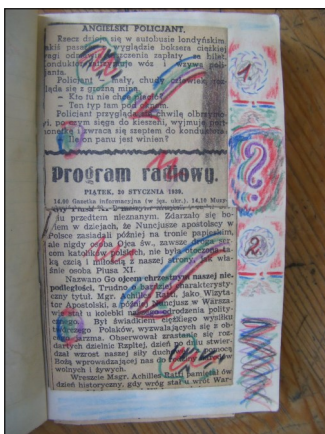 ANGIELSKI POLICJANT.
Rzecz dzieje się w autobusie londyńskim
pasażer wyglądzie boksera ciężkiej
wagi zapłacenia bilet.
Konduktor zatrzymuje wóz i wzywa poli-
cjanta.
Policjant — mały, chudy człowiek, roz-
gląda się z groźną miną:
— Kto tu nie chce płacić?
— Ten typ tam pod oknem.
Policjant przygląda się chwilę olbrzymo-
wi, potem sięga do kieszeni, wyjmuje
i zwraca się szeptem do konduktora:
— pan jest winien?
Program radiowy.
PIĄTEK, STYCZNIA 1939.
14.50 Gazetka informacyjna (w jęz. ukr.). 14.10 Muzy-
przedtem nieznanym. Zdarzało się bo-
wiem w dziejach, że Nuncjusze apostolscy w
Polsce zasiadali później na tronie papieskim,
ale nigdy Ojca św., zawsze drogi ser-
com katolików polskich, nie był otoczony ta-
ką czcią i miłością z naszej strony, jak wła-
śnie osoba Piusa XI.
Nazwano Go ojcem chrzestnym naszej nie-
podległości. Trudno charakterystycz-
czny tytuł. Mgr. Achilles Ratti, jako Wizyta-
tor Apostolski, a później Nuncjusz w Warsza-
wie, u kolebki odrodzenia polity-
cznego. Był świadkiem ciężkiego wysiłku
Polaków, wyzwalających się z ob-
cego jarzma. Obserwował zrastanie się roz-
dartych dzielnic Rzplitej, dzień po dniu stwier-
dzał wzrost naszej siły duchowej, pomocą
Bożą wprowadzającej nas do rodziny narodów
wolnych i żywych.
Wreszcie Mgr. Achilles Ratti pamiętał ów
dzień historyczny, gdy wróg stał u wrót War-
1
?
2